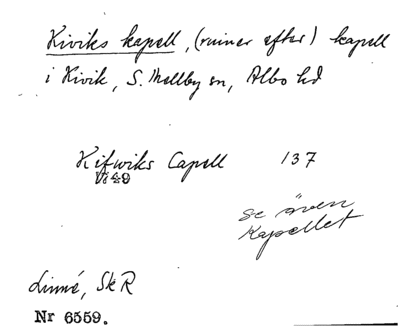 Kiviks kapell, (ruiner efter) kapell
i Kivik, S. Mellby sn, Albo hd
Kifwiks Capell 137
1749
se även
Kapellet
Linné, Sk R
Nr 6559.